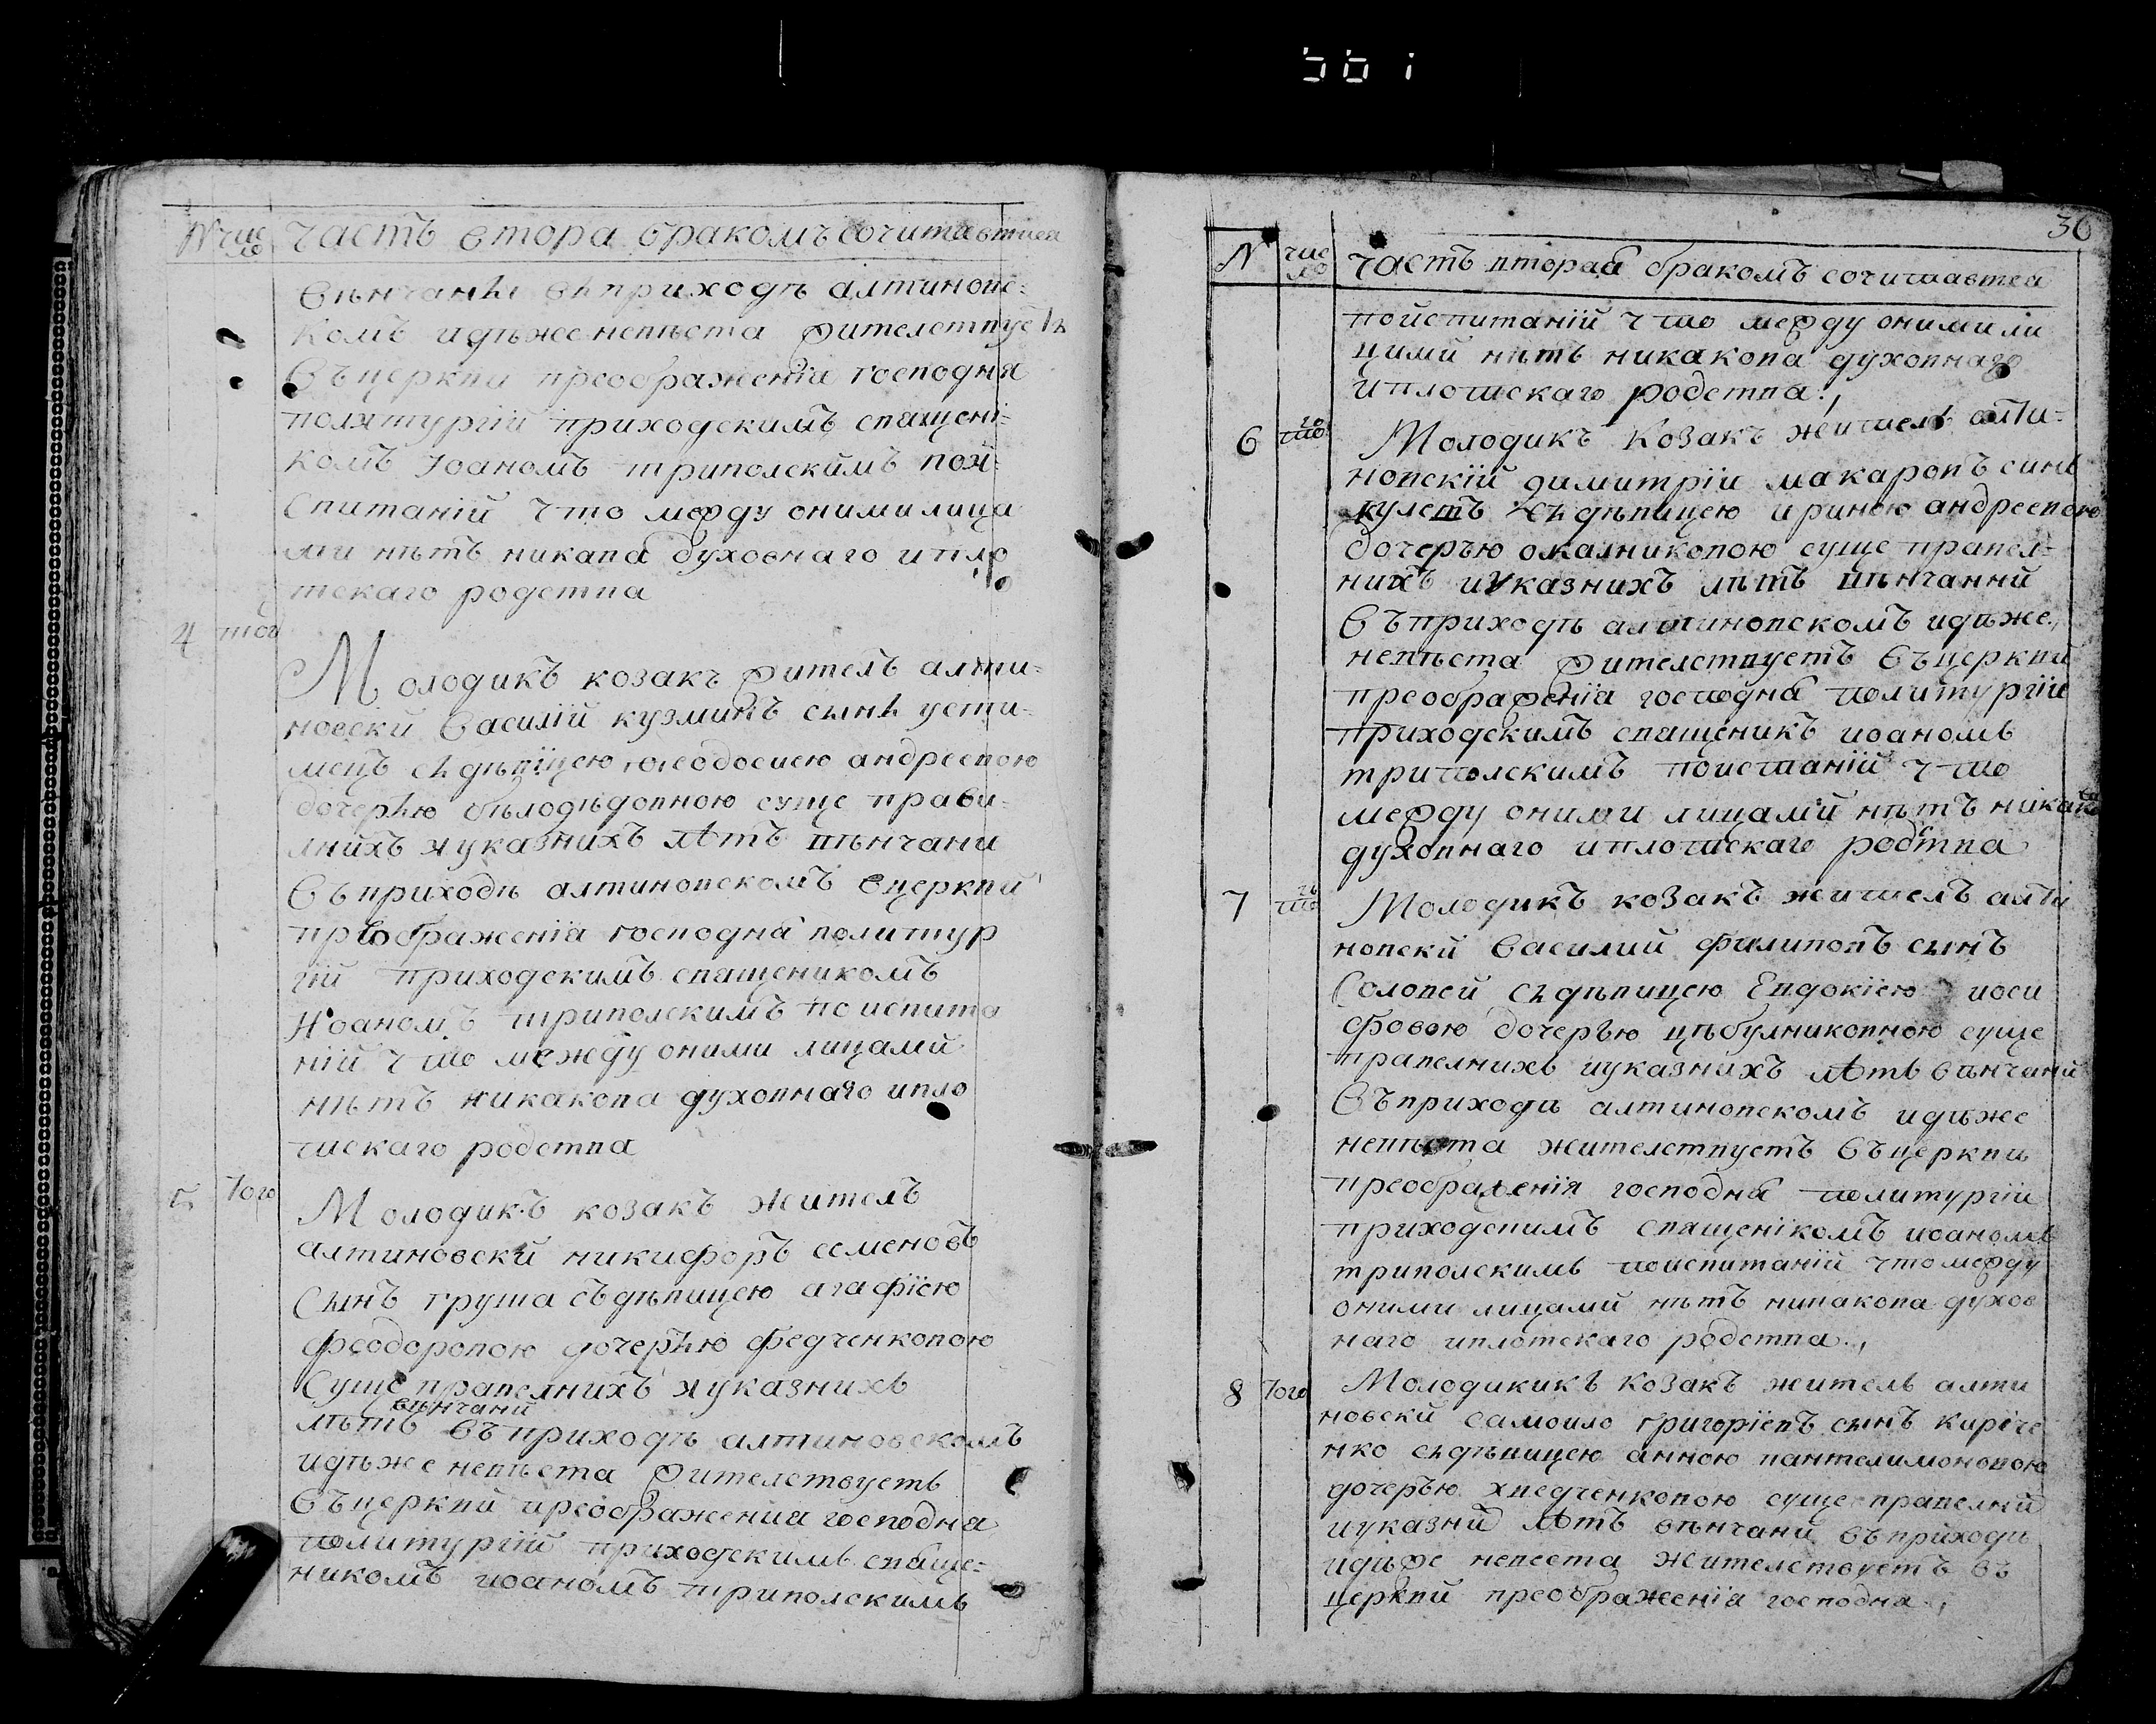 N чис
ло
часть втора браком сочитавшися
венчаны въ приходѣ алтиновс:
комъ идѣже невѣста жителствуетъ
Въ церкви преображения господня
политургии приходскимъ священі:
комъ Іоаномъ триполскимъ пои
спитаній что между оними лица
ми нѣтъ никава духовнаго и пло
тскаго родства
4 того
Молодикъ козакъ жителъ алти:
новски Василій кузминъ сынъ усти:
мецъ съ дѣвицею феодосиею андреевою
дочерью бѣлодѣдовною суще прави:
лнихъ и указнихъ лѣтъ вѣнчани
Въ приходѣ алтиновскомъ в церкви
преображенія господня политур
гіи приходскимъ священикомъ
Иоаномъ триполскимъ по испита
ній что между оними лицами
нѣтъ никакова духовнаго и пло
тскаго родства
5 Того
Молодикъ козакъ жителъ
алтиновски никифоръ семеновъ
сынъ груша съ дѣвицею агафіею
феодоровою дочерью федченковою
Суще правелнихъ и указнихъ
вѣнчани
лѣтъ въ приходѣ алтиновскомъ
идѣже невѣста жителствуетъ
Въ церкви преображения господня
политургий приходскимъ свяще:
никомъ иоаномъ триполскимъ
36
N чис
ло
часть вторая бракомъ сочитавшся
по испитаній что между оними ли
цими нѣтъ никакова духовнаго
и плотскаго родства.,
6 20 того
Молодикъ Козакъ жителъ алти:
новскій димитріи макаровъ синъ
кулешъ съ дѣвицею ириною андреевою
дочерью омалниковою суще правел:
нихъ и указнихъ лѣтъ вѣнчанни
Въ приходѣ алтиновскомъ идѣже,
невѣста жителствуетъ Въ церкви
преображенія господня политургіи
приходскимъ священикъ иоаномъ
триполскимъ поистаній что
между оними лицами нѣтъ никакова
духовнаго и плотскаго родства
7 26 того
Молодикъ козакъ жителъ алти
новски Василий филиповъ сынъ
Соловей съ дѣвицею Евдокіею иоси
фовою дочерью цѣбулниковною суще
правелнихъ и указнихъ лѣтъ вѣнчаний
Въ приходѣ алтиновскомъ идѣже
невѣста жителствуетъ Въ церкви
преображенія господня политургіи
приходскимъ священікомъ иоаномъ
триполскимъ поиспитаній что между
оними лицами нѣтъ никакова духов
наго и плотскаго родства.,
8 Того
Молодикикъ Козакъ житель алти
новски самоило григоріевъ сынъ киріче
нко съ дѣвицею анною пантелимоновою
дочерью хведченковою суще правелний
и указний лѣтъ вѣнчани въ приходи
идѣже невеста жителствуетъ въ
церкви преображенія господня.,